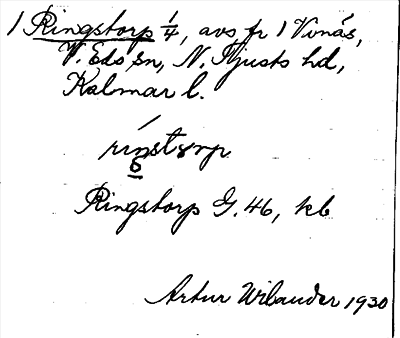 1 Ringstorp 1/4, avs. fr 1 Vinäs,
V. Eds sn, N. Tjusts hd,
Kalmar l.
Ringstorp G. 46, kb
Artur Wilander 1930